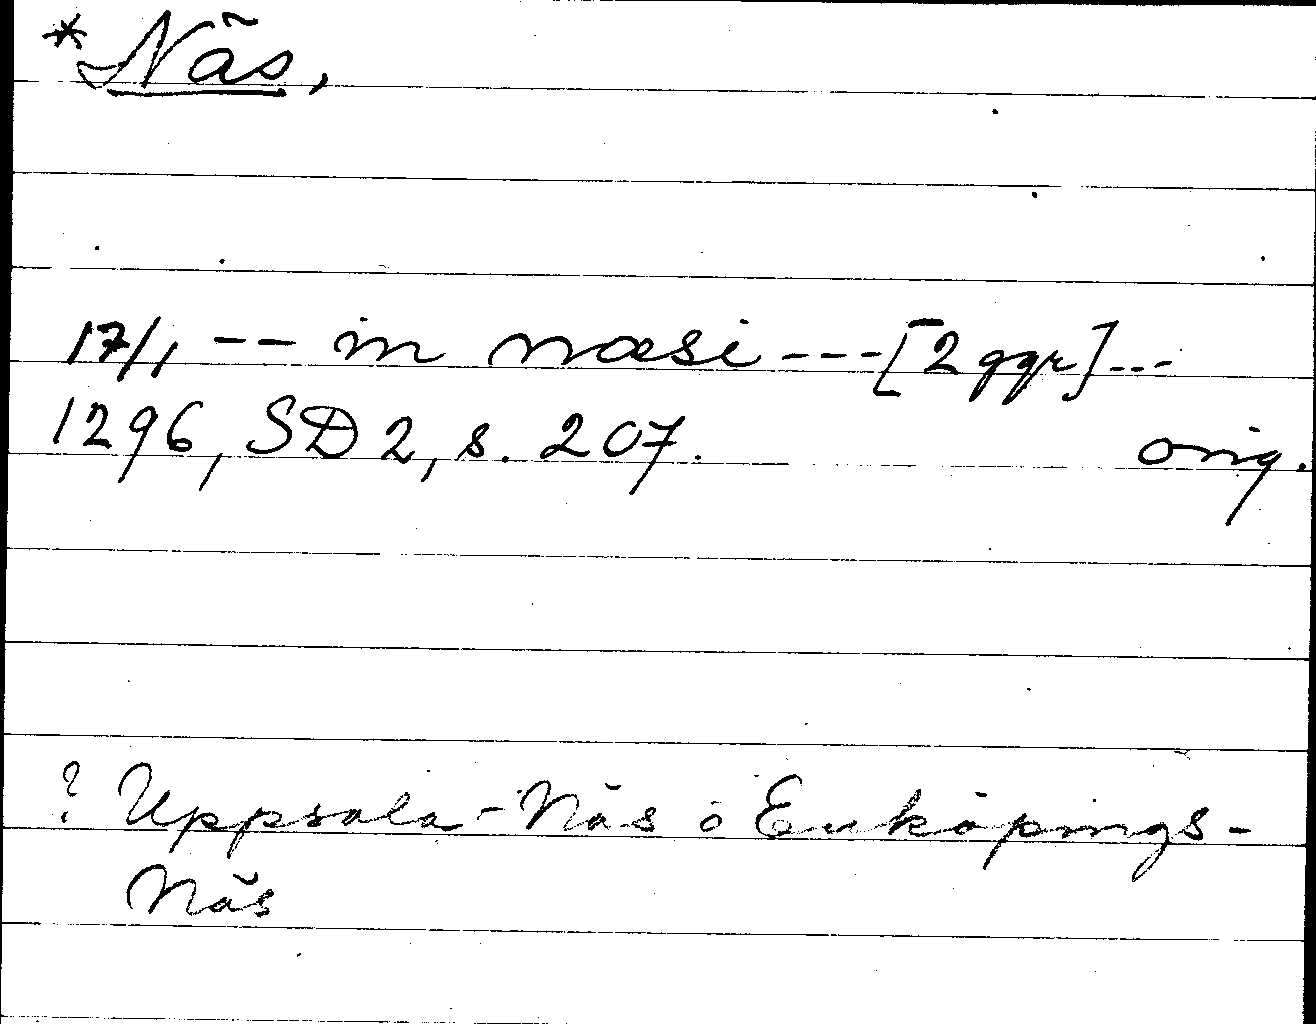 *Näs,
17/1 -- in næsi ---[2 ggr]---
1296, SD 2, s. 207. orig.
? Uppsala-Näs o Enköpings-
Näs